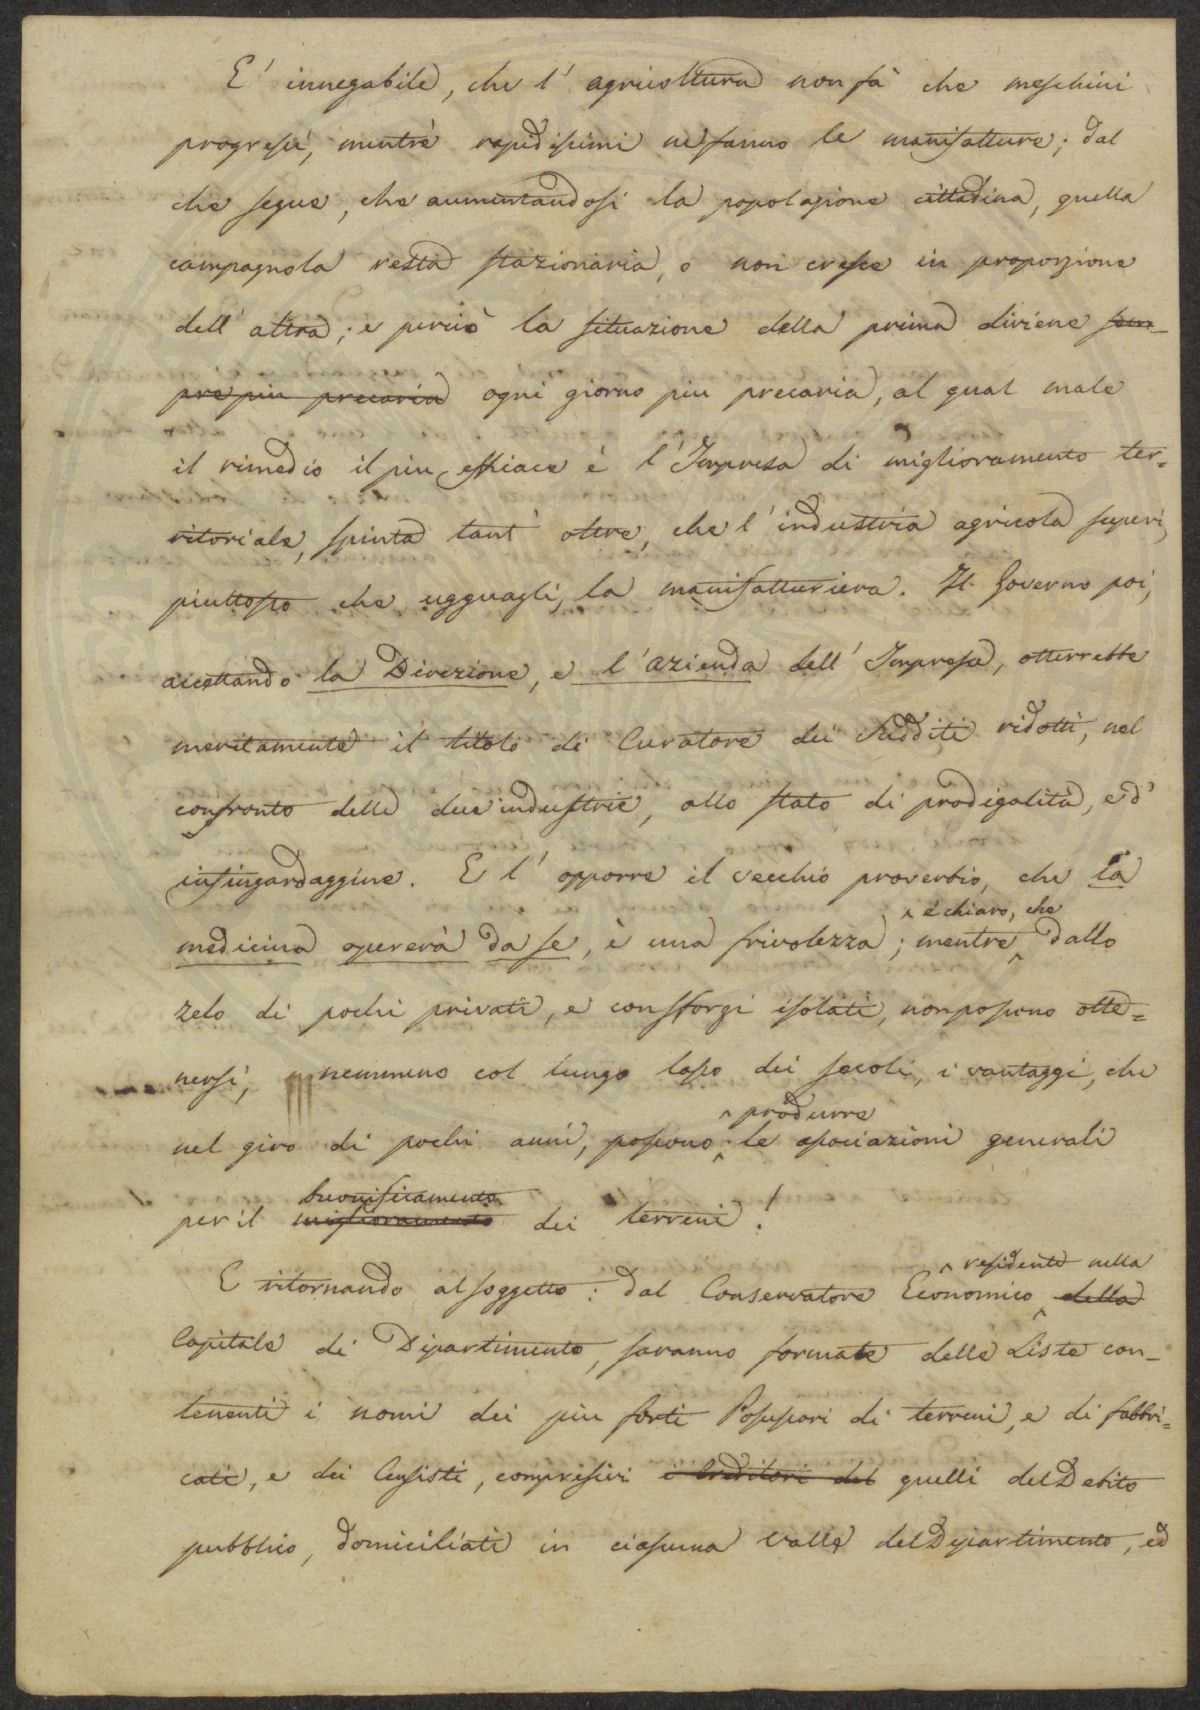 E' innegabile, che l'agricoltura non fà che meschini
progressi, mentrè rapidissimi ne fanno le manifatture; dal
che segue, che aumentandosi la popolazione cittadina, quella
campagnola resta stazionaria, o non cresce in proporzione
dell'altra; e perciò la situazione della prima diviene sem-
pre piu precaria ogni giorno piu precaria, al qual male
il rimedio il piu efficace è l'Impresa di miglioramento ter=
ritoriale, spinta tant' oltre, che l'industria agricola superi,
piuttosto che ugguagli, la manifatturiera. Il Governo poi,
accettando la Direzione, e l'azienda dell'Impresa, otterrebbe
meritamente il titolo di Curatore dei Sudditi ridotti, nel
confronto delle due industrie, allo stato di prodigalità, e d'
infingardaggine. E l'opporre il vecchio proverbio, che la
medicina opererà da se, è una frivolezza; mentre è chiaro, che dallo
zelo di pochi privati, e con sforzi isolati, non possono otte=
nersi, nemmeno col lungo lasso dei secoli, i vantaggi, che
nel giro di pochi anni, possono produrre le associazioni generali
per il miglioramento buonificamento dei terreni!
E ritornando al soggetto: dal Conservatore Economico della residente nella
Capitale di Dipartimento, saranno formate delle Liste con-
tenenti i nomi dei piu forti Possessori di terreni, e di fabbri=
cati, e dei Censisti, compresivi i Creditori del quelli del Debito
pubblico, domiciliati in ciascuna Valle del Dipartimento, ed